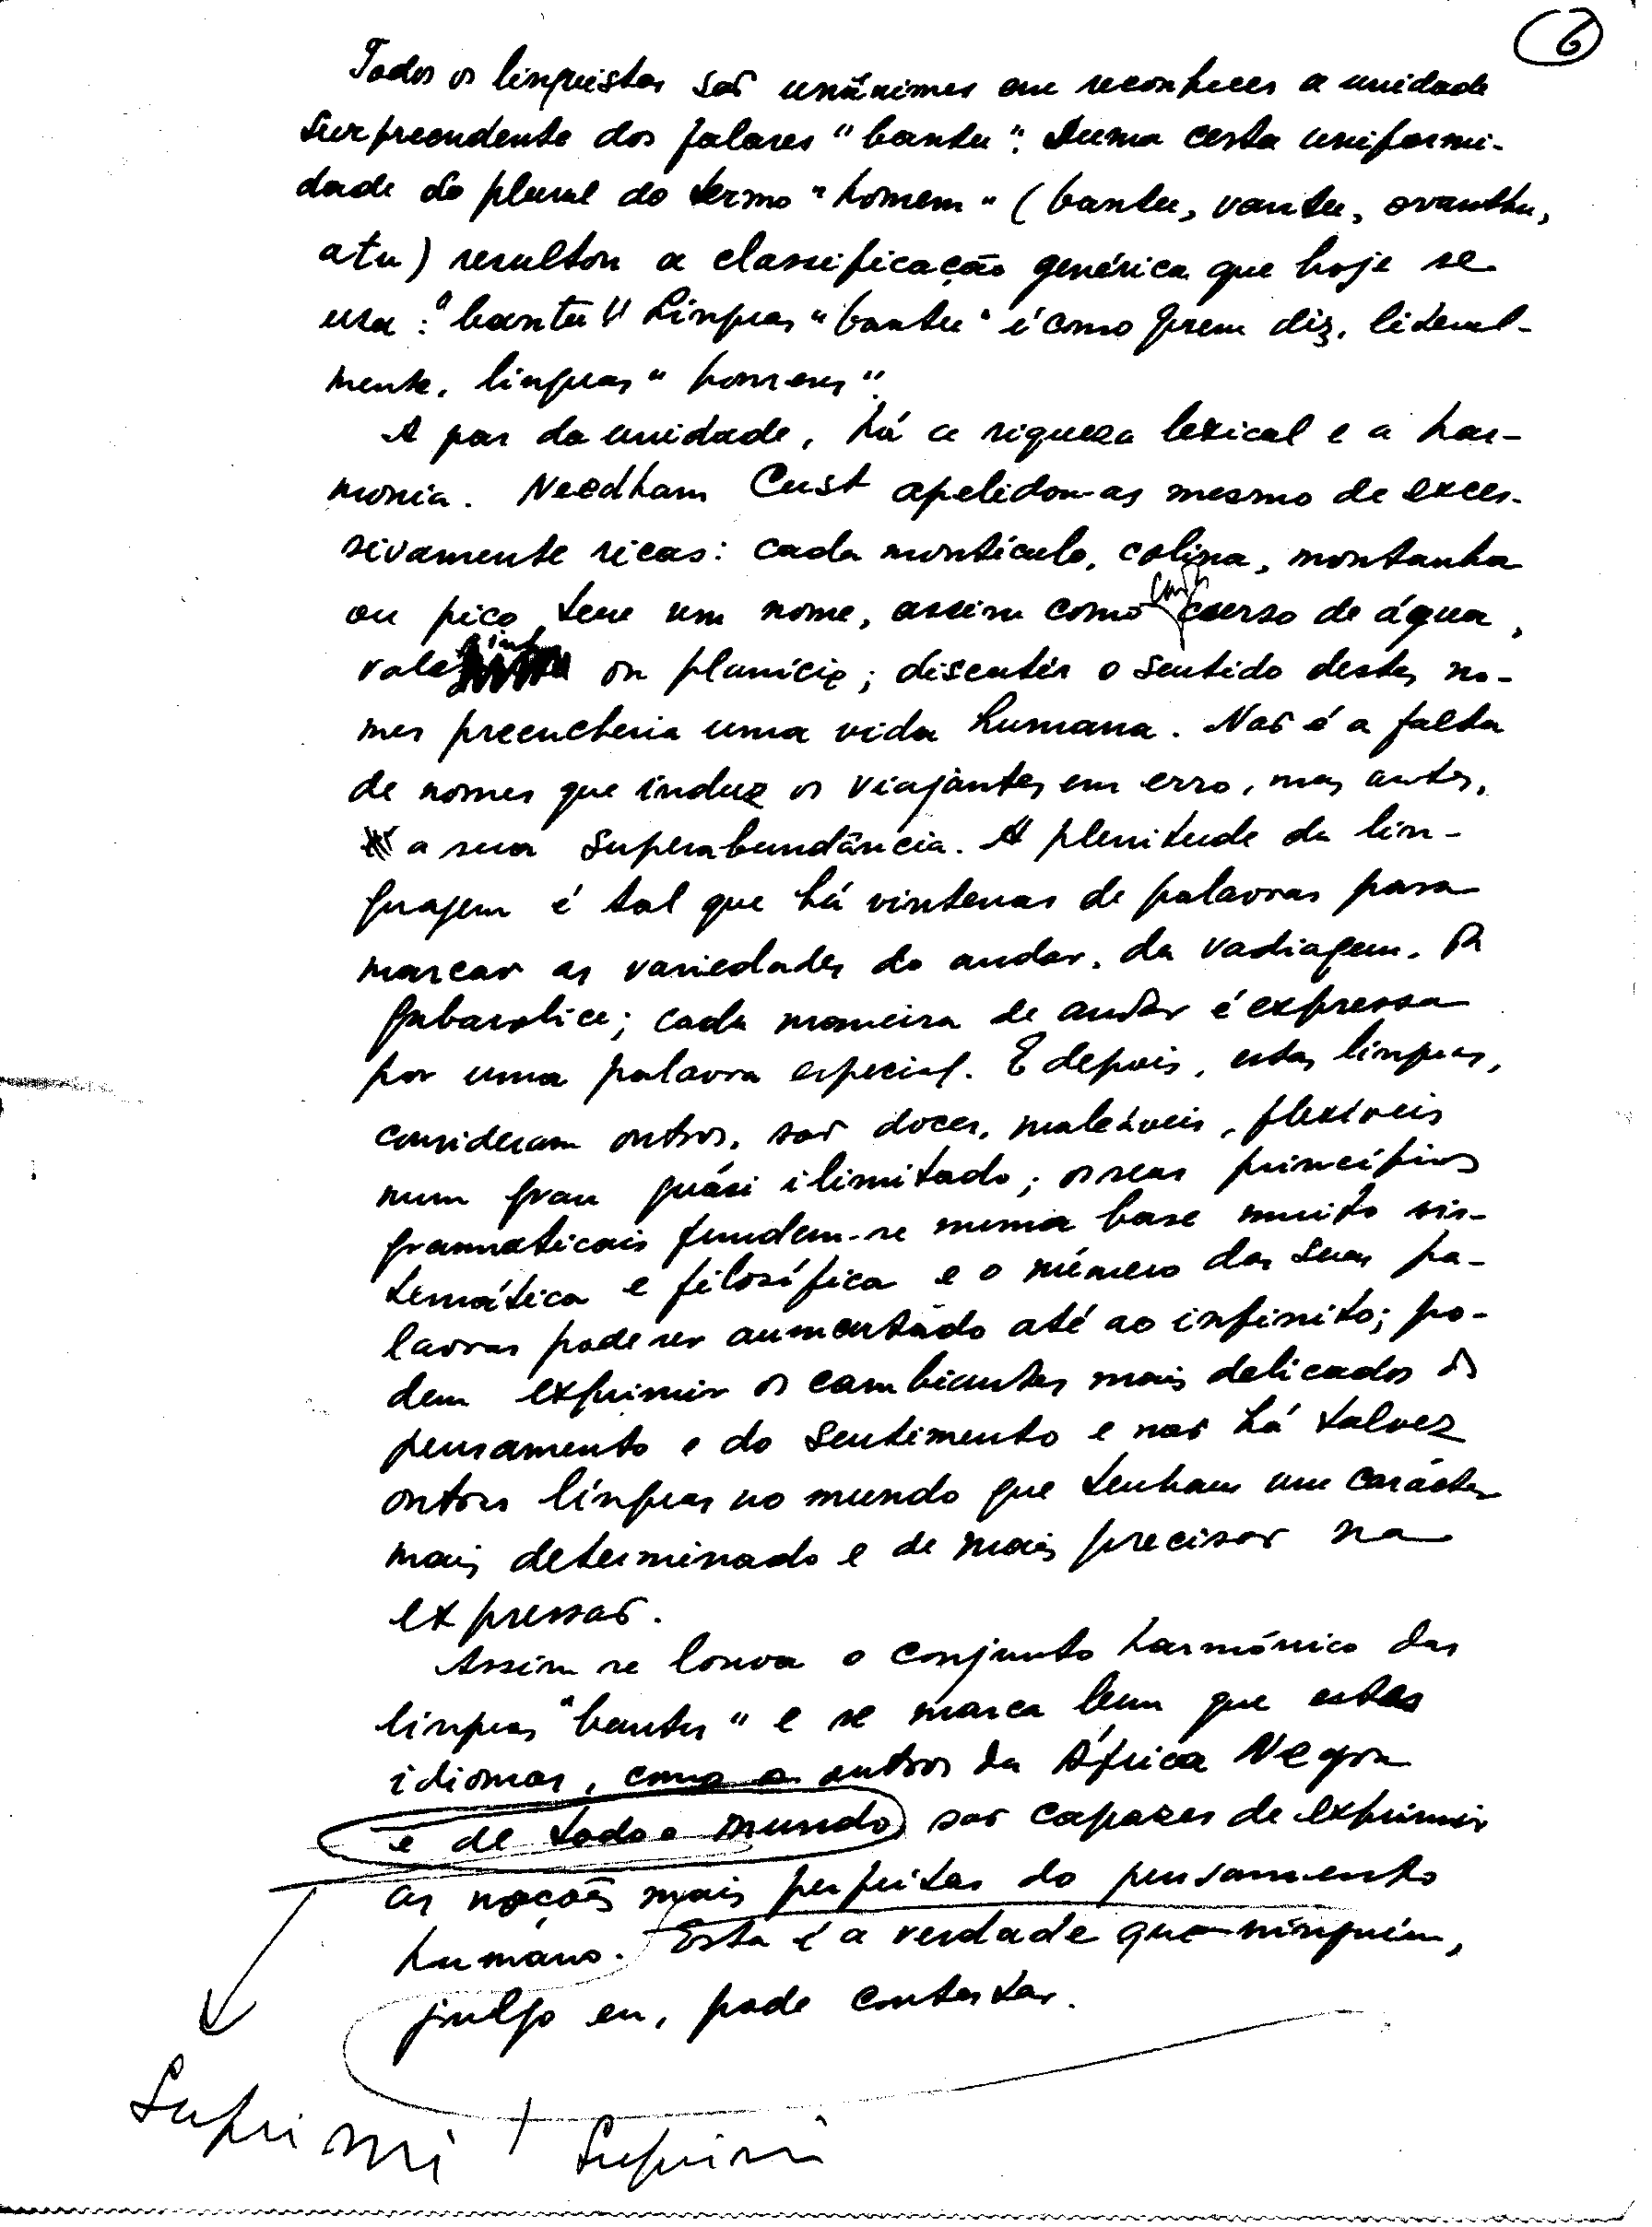 6
Todos os linguistas são unânimes em reconhecer a unidade
surpreendente dos falares "bantu". Duma certa uniformi-
dade do plural do termo "homem" (bantu, vantu, ovanthu,
atu) resultou a classificação genérica que hoje se
usa: "bantu". Línguas "bantu" é como quem diz, literal-
mente, línguas "homens".
A par da unidade, há a riqueza lexical e a har-
monia. Needham Cust apelidou-as mesmo de exces-
sivamente ricas: cada montículo, colina, montanha
ou pico tem um nome, assim como cada curso de água,
vale ou planície; discutir o sentido destes no-
mes preencheria uma vida humana. Não é a falta
de nomes que induz os viajantes em erro, mas antes,
a sua superabundância. A plenitude da lin-
guagem é tal que há vintenas de palavras para
marcar as variedades do andar, da vadiagem, da
gabarolice; cada maneira de andar é expressa
por uma palavra especial. E depois, estas línguas,
consideram outros, são doces, maleáveis, flexíveis
num grau quási ilimitado; os seus princípios
gramaticais fundem-se numa base muito sis-
temática e filosófica e o número das suas pa-
lavras pode ser aumentado até ao infinito; po-
dem exprimir os cambiantes mais delicados do
pensamento e do sentimento e não há talvez
outras línguas no mundo que tenham um carácter
mais determinado e de mais precisão na
expressão.
Assim se louva o conjunto harmónico das
línguas "bantu" e se marca bem que estes
idiomas, como os outros da África Negra
e de todo o mundo são capazes de exprimir
as noções mais perfeitas do pensamento
humano. Esta é a verdade que ninguém,
julgo eu, pode contestar.
Suprimi
Suprimi